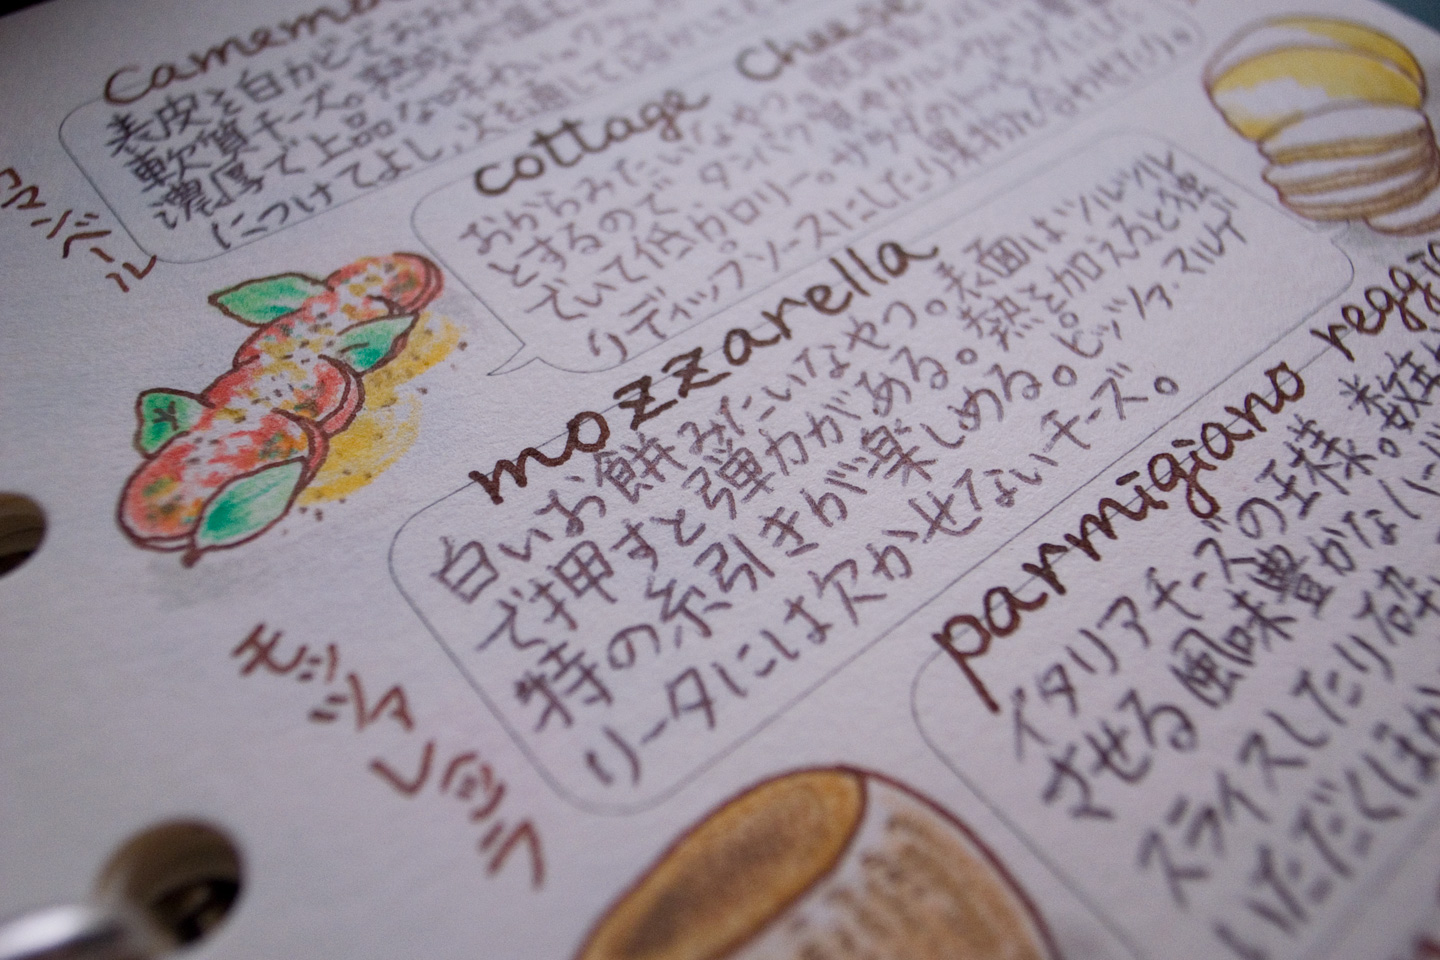 Camem
表皮を白カビでおおわ
軟質チーズ。熟成が進
濃厚で上品な味わい。
につけてよし、火を通して
マンベール
cottage cheese
おからみたいなやつ。
とするので タンパク
でいて低カロリー。サラダのトッピングにした
りディップソースにしたり果物と合わせたり。
mozzarella
白いお餅みたいなやつ。表面はツルツル
で押すと弾力がある。熱を加えると独
特の糸引きが楽しめる。ピッツァ・マルゲ
リータには欠かせないチーズ。
モッツァレッラ
parmigiano reggi
イタリアチーズの王様。数年
させる風味豊かなハード
スライスしたり砕
いただくほか